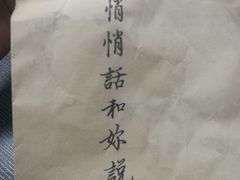 悄悄話和妳說